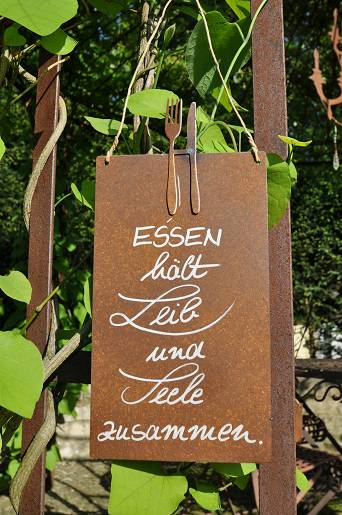 ESSEN
hält
Leib
und
Seele
zusammen.